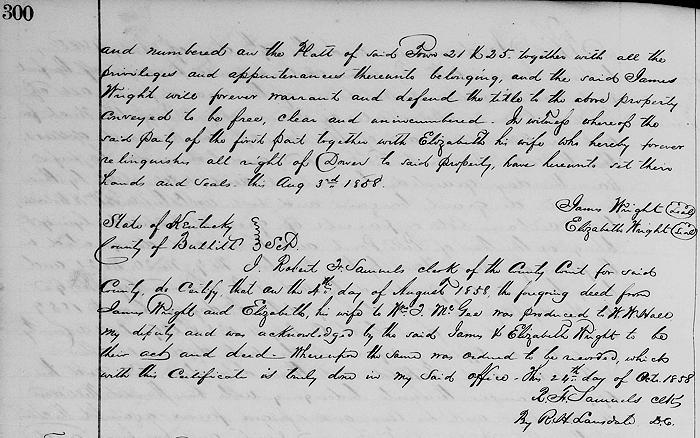 300
and numbered on the Platt of said Town 21 & 25. together with all the
privileges and appurtenances thereunto belonging, and the said James
Wright will forever warrant and defend the title to the above property
conveyed to be free, clear and unincumbered. In witness whereof the
said party of the first part together with Elizabeth his wife who hereby forever
relinquishes all right of Dower to said property, have hereunto set their
hands and seals. this Aug 3rd 1858.
James Wright (Seal)
Elizabeth Wright (Seal)
State of Kentucky
County of Bullitt } Sct.
I, Robert F. Samuels clerk of the County Court for said
County, do Certify, that on the 4th day of August 1858, the foregoing deed from
James Wright and Elizabeth, his wife to Wm. J. McGee was produced to W. W. Hall
my deputy and was acknowledged by the said James & Elizabeth Wright to be
their act and deed. Whereupon the same was ordered to be recorded, which
with this Certificate is truly done in my said office. This 24th day of Oct. 1858
R. F. Samuels clk
By R. H. Lansdale D.C.